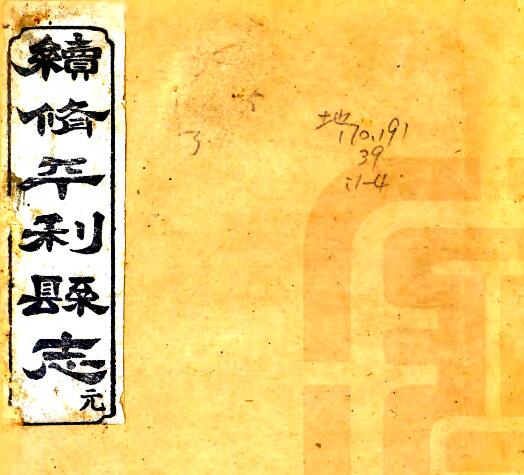 續修平利縣志
元
地
170.191
39
:1-4